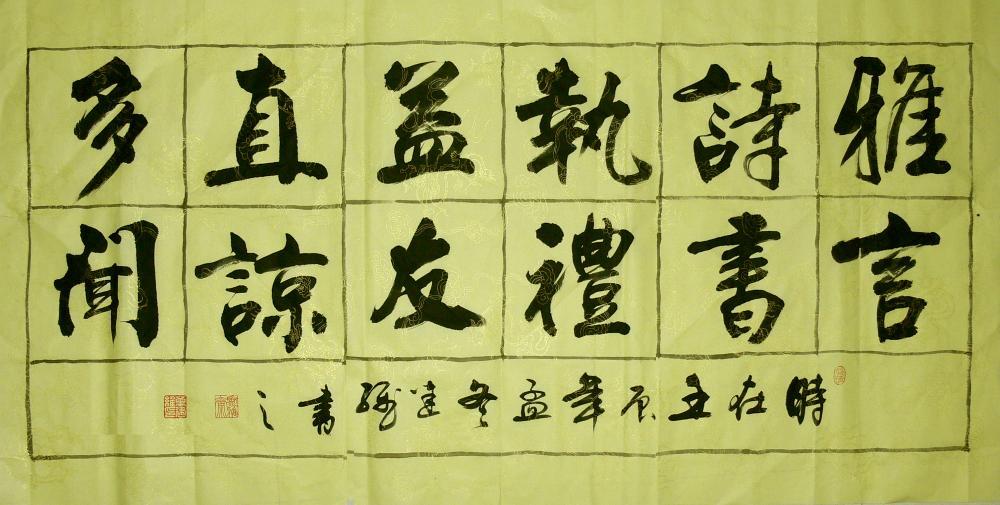 雅言
詩書
執禮
益友
直諒
多聞
時在壬辰年孟冬建强書之